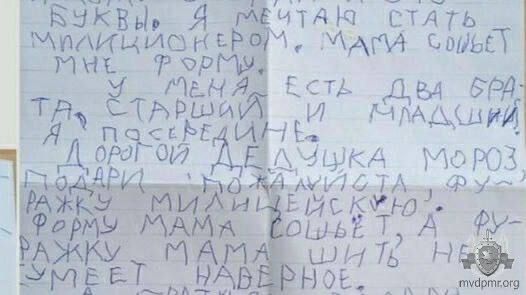 БУКВЫ. Я МЕЧТАЮ СТАТЬ
МИЛИЦИОНЕРОМ. МАМА СОШЬЕТ
МНЕ ФОРМУ.
У МЕНЯ ЕСТЬ ДВА БРА-
ТА, СТАРШИЙ И МЛАДШИЙ.
Я ПОСЕРЕДИНЕ.
ДОРОГОЙ ДЕДУШКА МОРОЗ,
ПОДАРИ ПОЖАЛУЙСТА ФУ-
РАЖКУ МИЛИЦЕЙСКУЮ,
ФОРМУ МАМА СОШЬЕТ, А ФУ-
РАЖКУ МАМА ШИТЬ НЕ
УМЕЕТ НАВЕРНОЕ.
mvdpmr.org